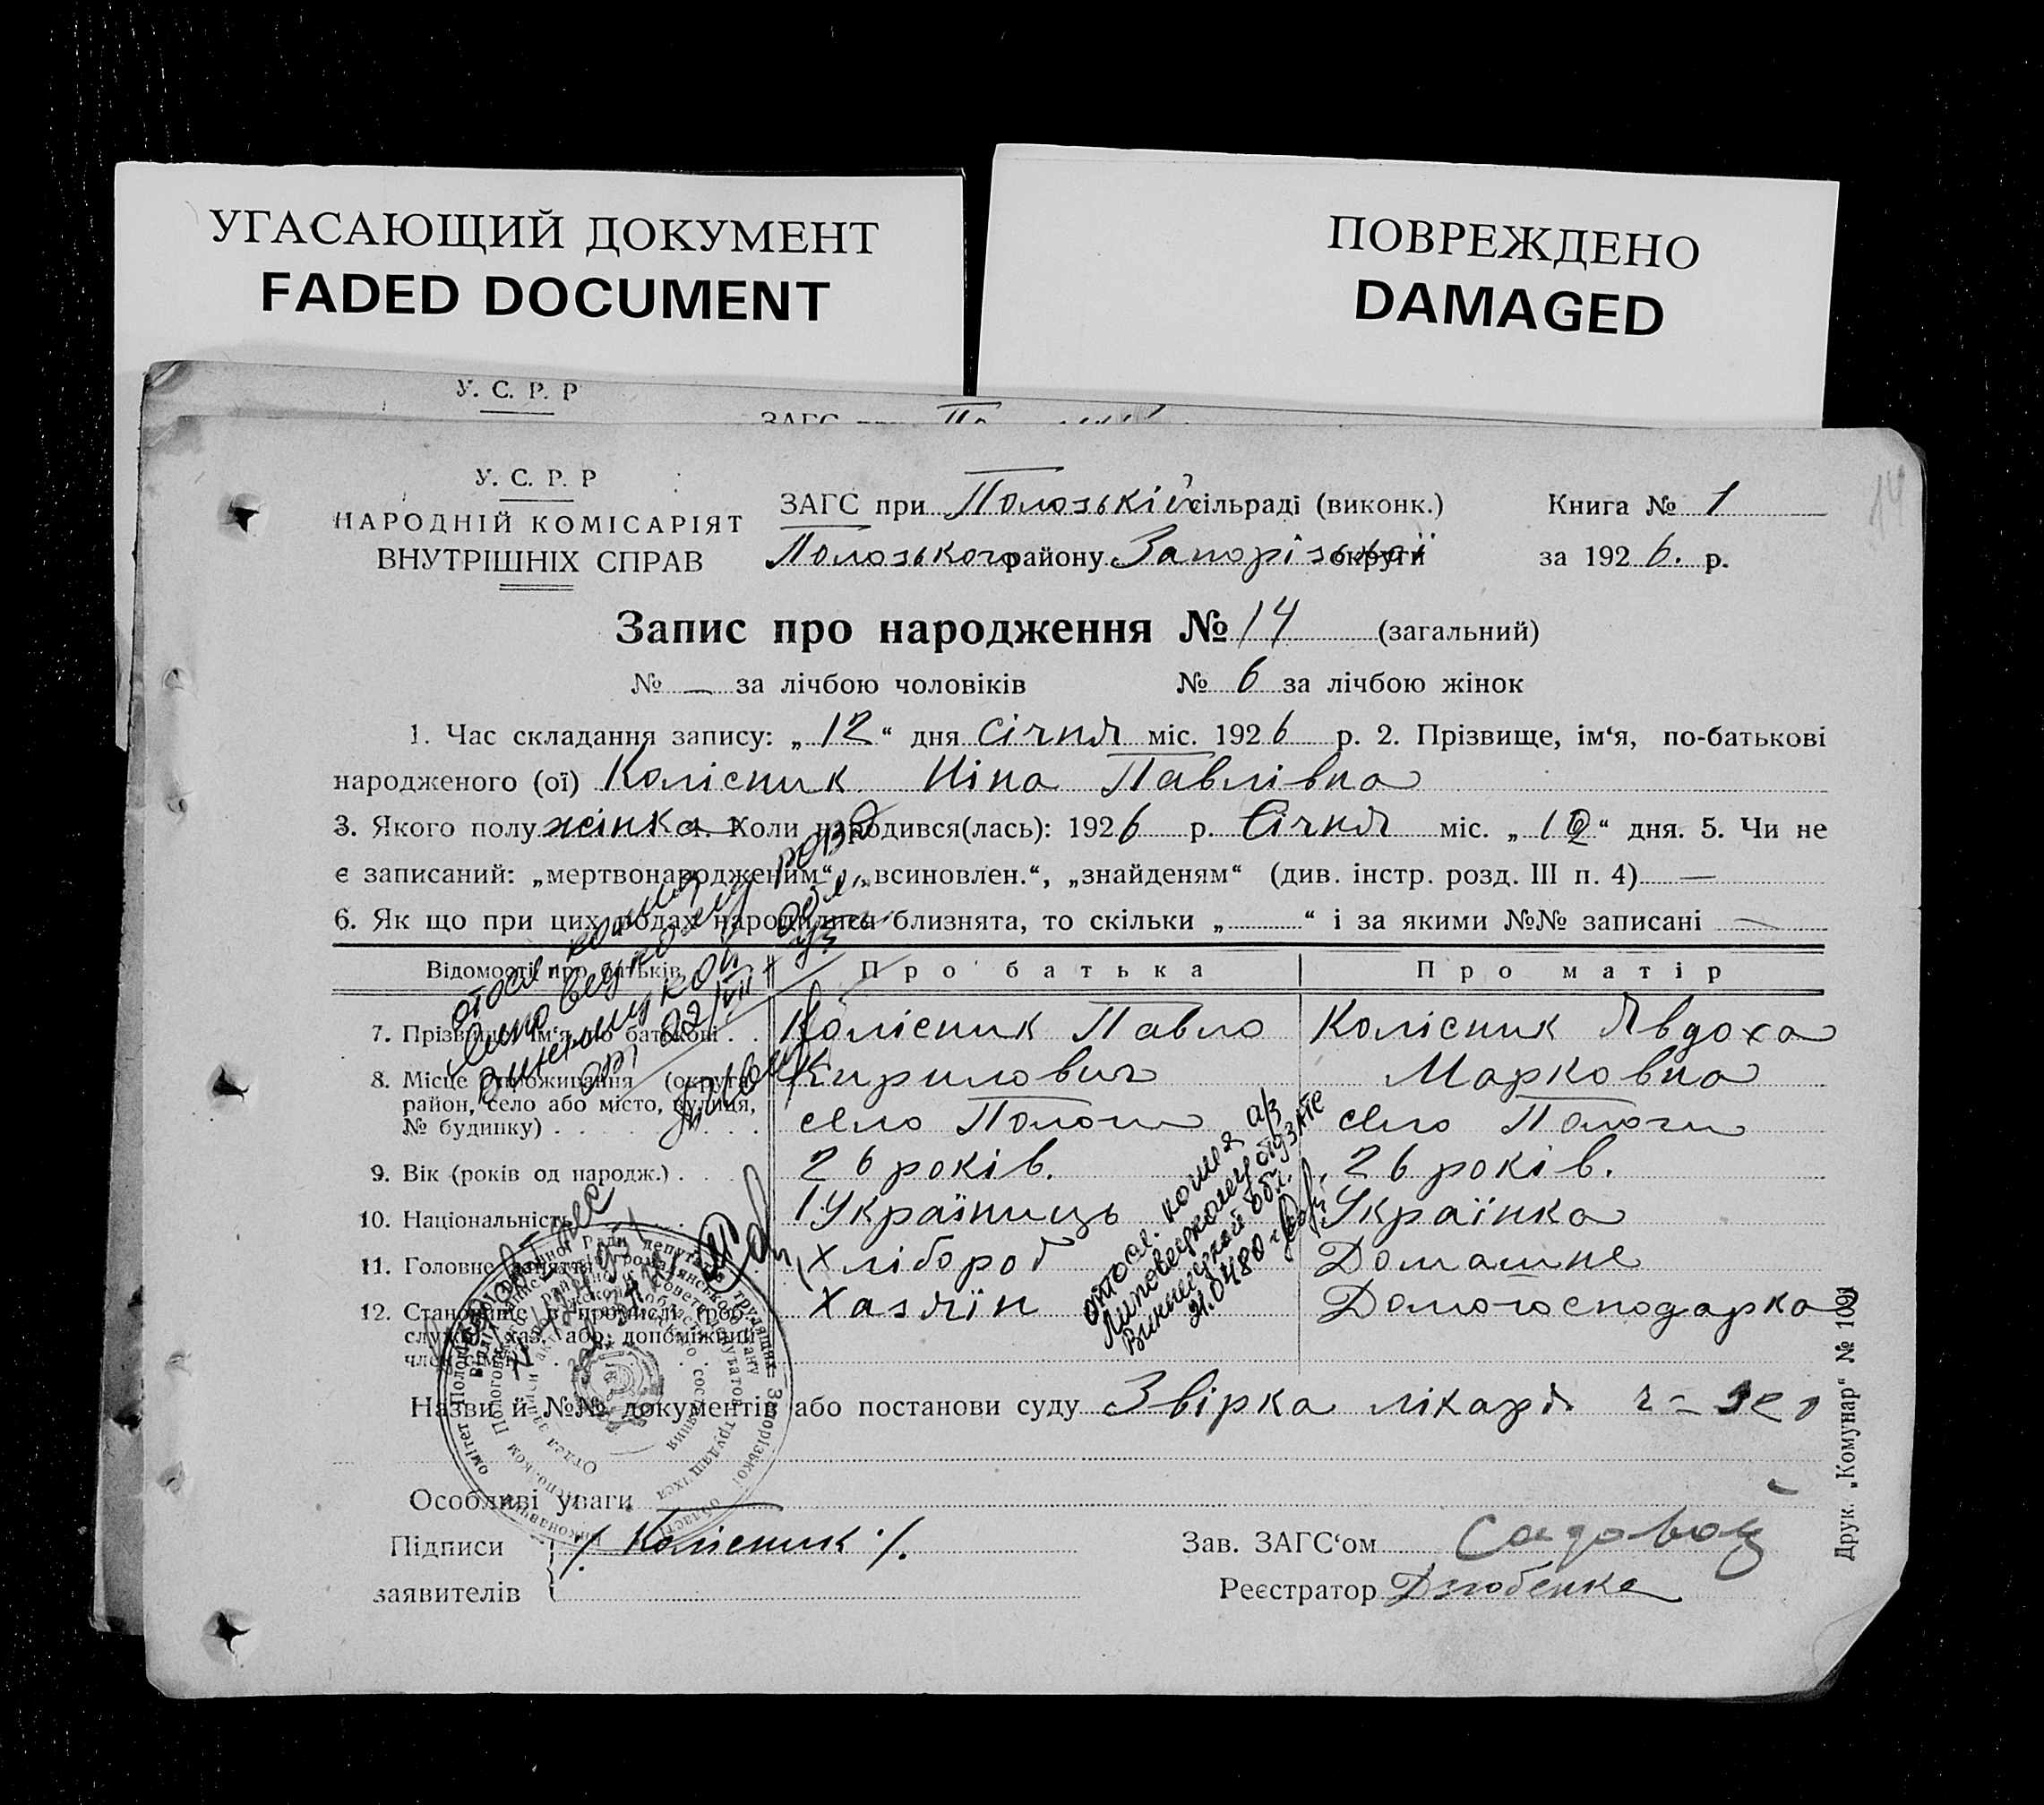 УГАСАЮЩИЙ ДОКУМЕНТ
FADED DOCUMENT
ПОВРЕЖДЕНО
DAMAGED
У. С. Р. Р
У. С. Р. Р
НАРОДНІЙ КОМІСАРІЯТ
ВНУТРІШНІХ СПРАВ
ЗАГС при Полозькій сільраді (виконк.)
Полозького району Запорізької округи
Книга № 1
за 1926. р.
14
Запис про народження № 14 (загальний)
№ — за лічбою чоловіків № 6 за лічбою жінок
1. Час складання запису: „12“ дня Січня міс. 1926 р. 2. Прізвище, ім‘я, по-батькові
народженого (ої) Колісник Ніна Павлівна
3. Якого полу жінка 4. Коли народився(лась): 1926 р. Січня міс. „ “ дня. 5. Чи не
є записаний: „мертвонародженим“, „всиновлен.“, „знайденям“ (див. інстр. розд. III п. 4) —
6. Як що при цих родах народилися близнята, то скільки „ “ і за якими №№ записані —
Відомості про батьків Про батька Про матір
7. Прізвище, ім‘я по батькові Колісник Павло Колісник Явдоха
Кирилович Марковна
8. Місце проживання (округа,
район, село або місто, вулиця,
№ будинку) село Пологи село Пологи
9. Вік (років од народж.) 26 років. 26 років.
10. Національність Українець Українка
11. Головне заняття Хлібороб Домашне
12. Становище в промислі (роб.,
служб., хаз. або допоміжний
член сім‘ї) Хазяїн Домогосподарка
отосл. копия а/з
Липовецкому отд ЗАГС
Винницкой обл.
21.04.80
Назви й №№ документів або постанови суду Звірка лікаря
Особливі уваги —
Підписи
заявителів /Колісник/.
Зав. ЗАГС‘ом Садовой
Реєстратор Дзюбенко
Друк. „Комунар“ № 1091